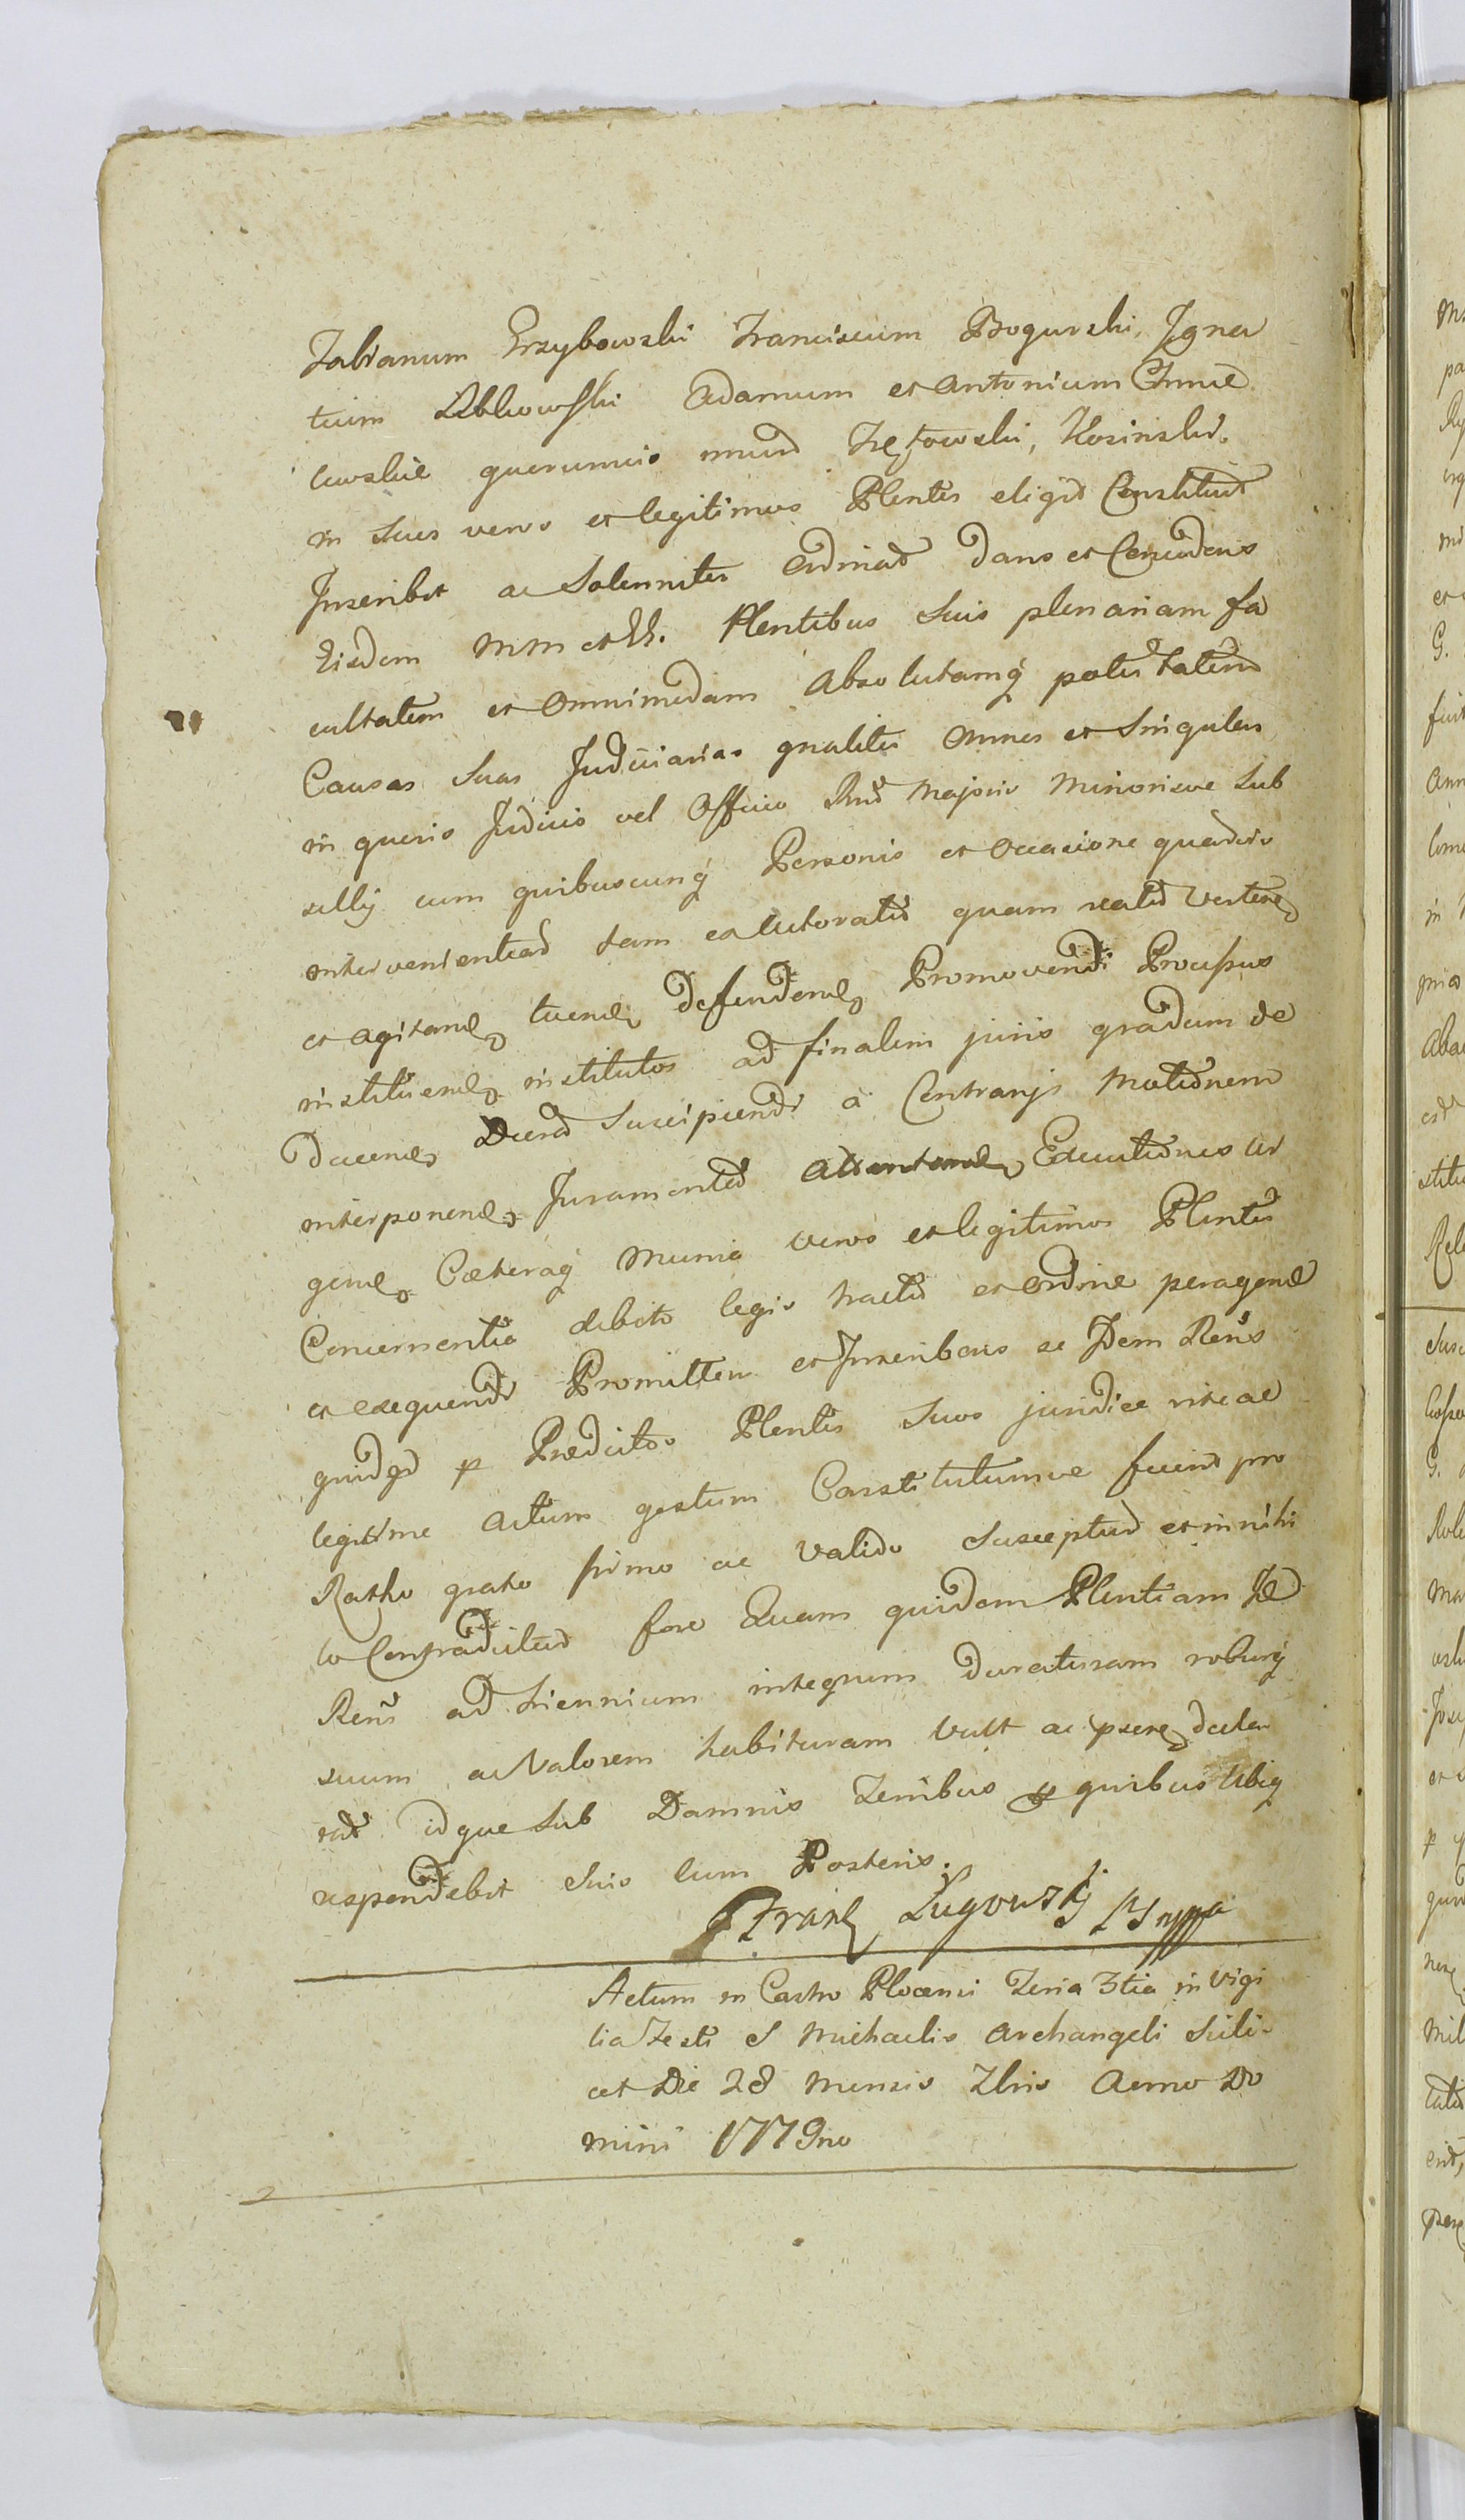 Fabianum Grzybowski Franciscum Bogurski, Igna
tium Błkowski Adamum et Antonium Chmie
lewskie quorumvis mund Zętowski, Kosinski
in suos veros et legitimos Plentes eligit Constituit
Inscribit ac Solenniter Ordinat dans et Concedens
Eisdem MM et GG. Plentibus suis plenariam fa
cultatem et Omnimodam Absolutamq potestatem
Causas suas Judiciarias gnaliter Omnes et Singulas
in quovis Judicio vel Officio Rni Majoris Minorisve Sub
selly cum quibuscunq Personis et Occasione quadvis
intervenientiad tam actoratus quam reatus vertere
et agitand, tuend, defendend, Promovendi Processus
instituend, institutos ad finalem juris gradum de
ducend, Dicend Suscipiendi a Contrarijs Motionem
interponend, Juramenta Attentand, Executiones ur
gend, Caeteraq Munia veros et legitimos Plentes
Concernentia debito legis tractu et Ordine peragend
et exequendi Promittens et Inscribens se Idem Rens
quidqd p Praedictos Plentes Suos juridice rite ac
legitime Actum gestum Constitutumve fuerit pro
Ratho grato firmo ac valido Suscepturum et in nihi
lo Contradicturum fore Quam quidem Plentiam Id
Rens ad triennium integrum duraturam roburq
suum ac Valorem habituram Vult ac psente decla
rat idque Sub Damnis Terribus p quibus Ubiq
respondebit Suis Cum Posteris.
Franc Ługowskj
Actum in Castro Plocensi Feria 3tia in Vigi
lia Festi S Michaelis Archangeli Scili
cet Die 28 Mensis 7bris Anno Do
mini 1779no